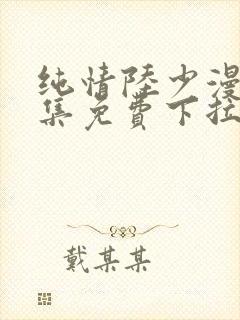 纯情陸少漫
集免費下拉
戴某某